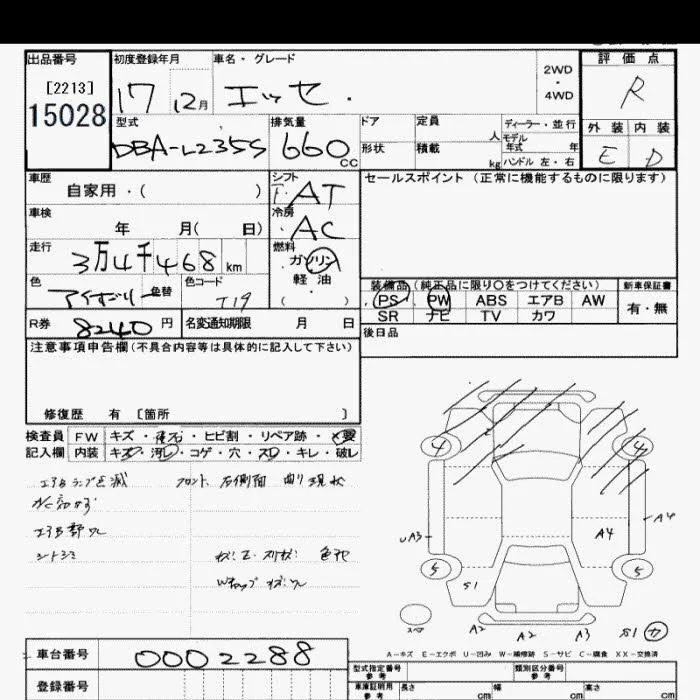 出品番号 初度登録年月 車名・グレード 2WD・4WD 評価点
[2213]
15028
17 12月 エッセ R
型式 排気量 ドア 定員 人 ディーラー・並行
モデル年式 年
外装 内装
DBA-L235S 660cc 形状 積載 kg ハンドル 左・右
E D
車歴 シフト セールスポイント(正常に機能するものに限ります)
自家用・( ) F・AT
車検 冷房
年 月( 日) AC
走行 燃料
3万4千468km ガソリン
軽油
( )
色 色替 色コード
アイボリー T19
装備品(純正品に限り〇をつけてください) 新車保証書
PS PW ABS エアB AW 有・無
SR ナビ TV カワ
R券 8240円 名変通知期限 月 日 後日品
注意事項申告欄(不具合内容等は具体的に記入して下さい)
修復歴 有 [箇所 ]
検査員 FW キズ・飛石・ヒビ割・リペア跡・X要
記入欄 内装 キズ・汚レ・コゲ・穴・スレ・キレ・破レ
エアBランプ点滅 フロント 右側面 曲り現状
シートシミ
Wキャップ
4 4
UA3 A4 A4
5 5
S1
A2 A2 A3 S1 カ
スペア
A-キズ E-エクボ U-凹み W-補修跡 S-サビ C-腐食 XX-交換済
車台番号 0002288 型式指定番号 参考 類別区分番号 参考
登録番号 車庫証明用 参考 長さ cm 幅 cm 高さ cm